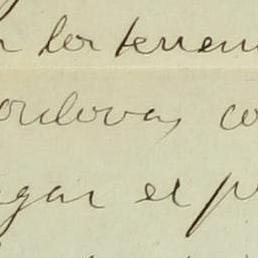 los terren
ordova, co
gar el p